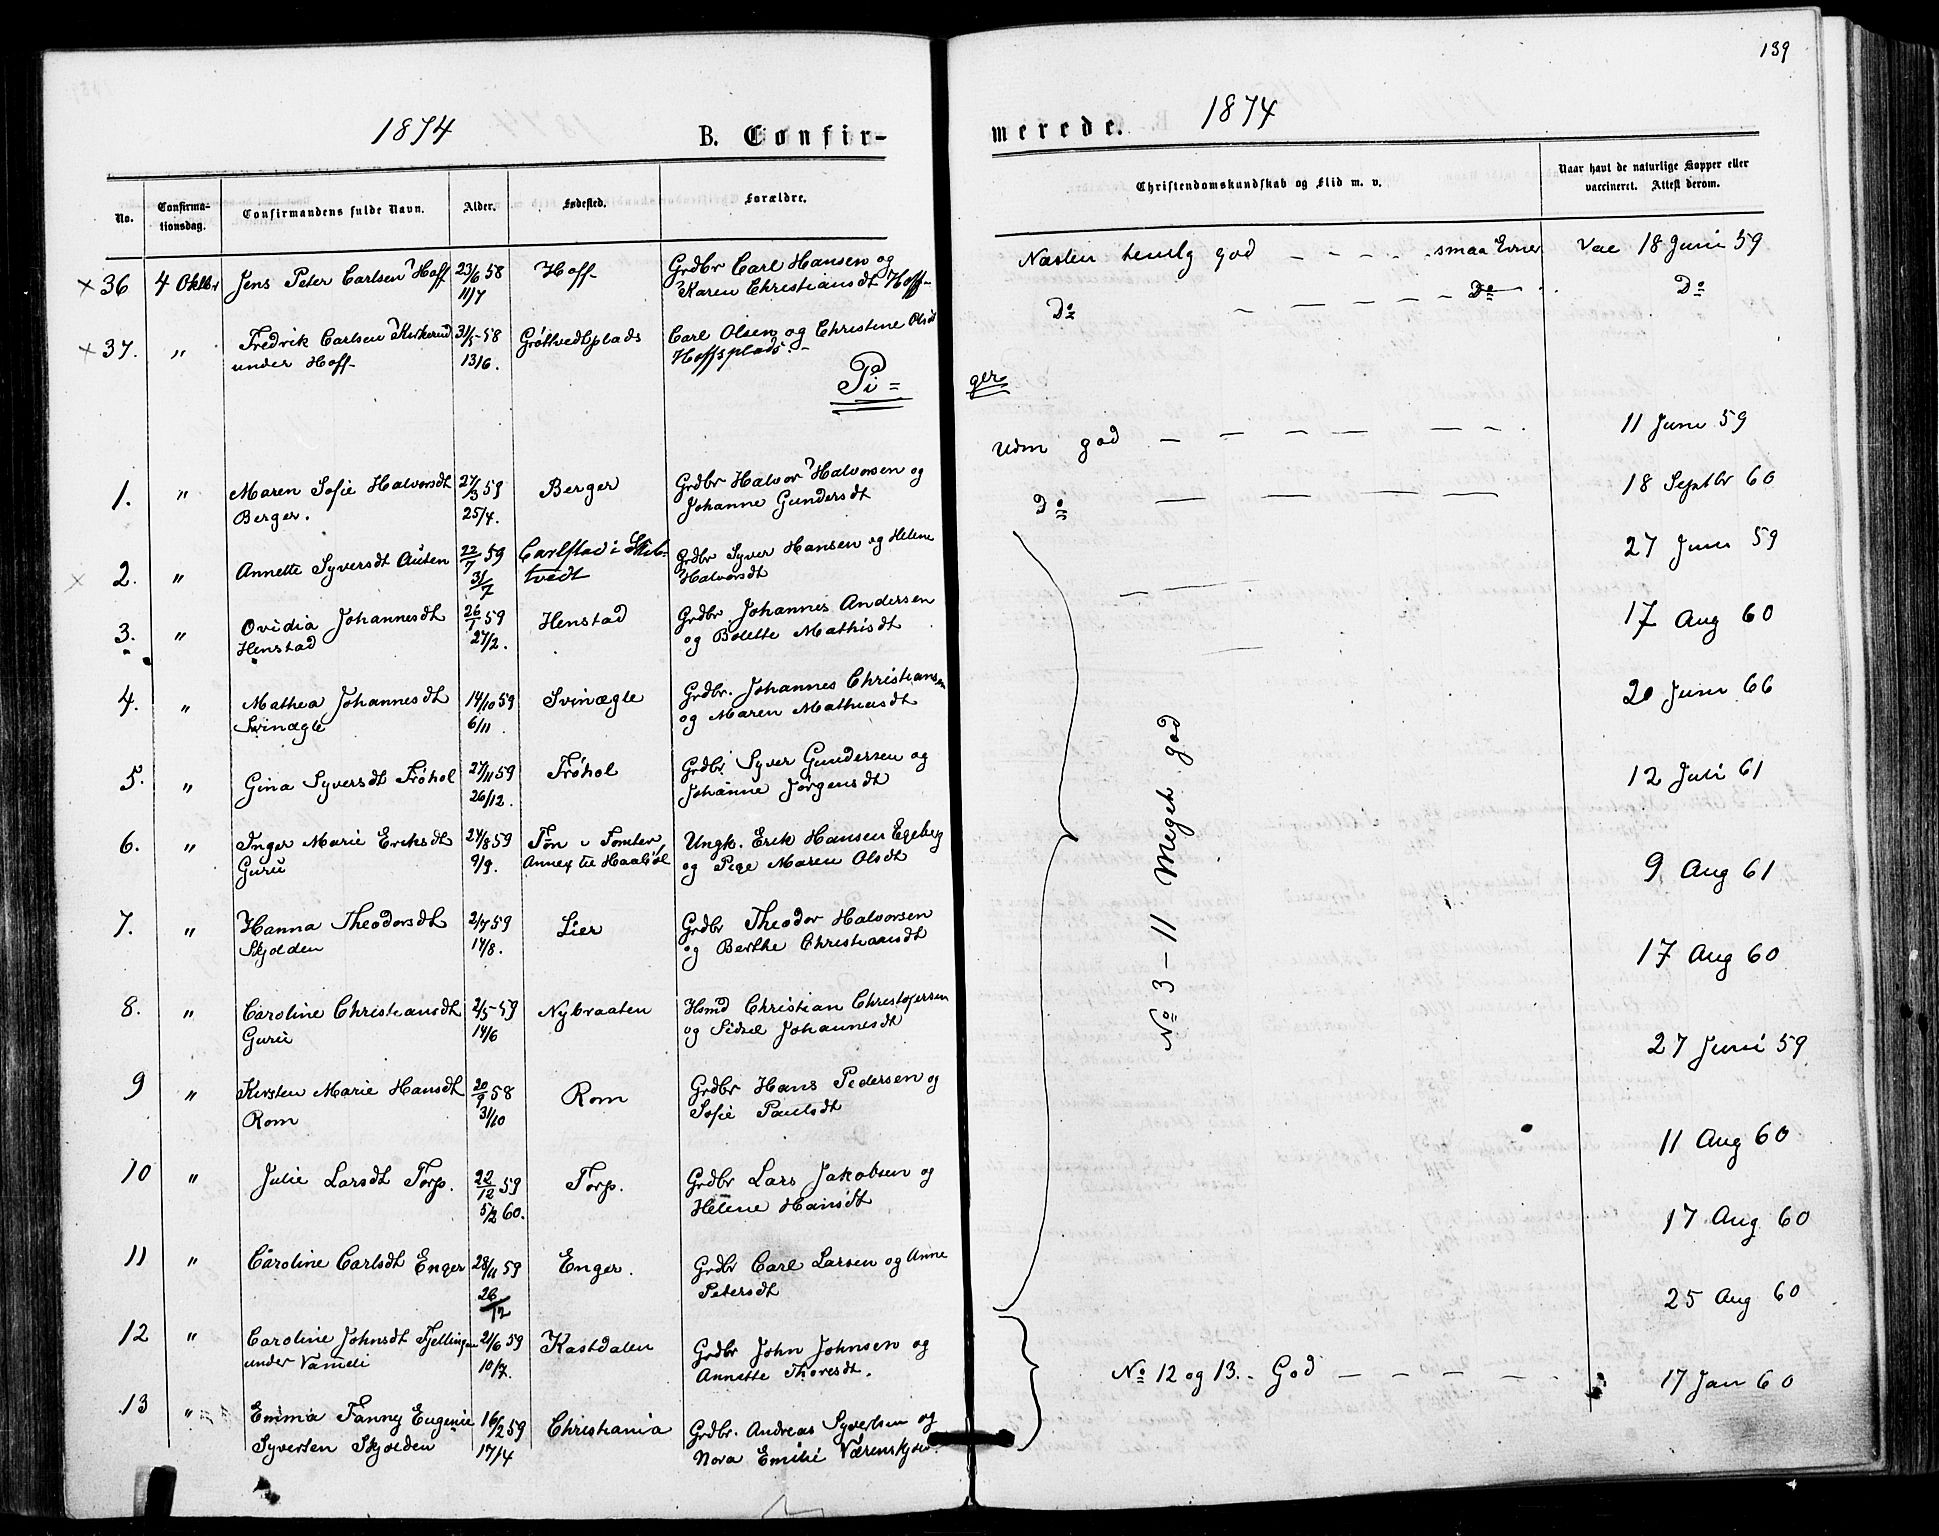 139
1874
B. Confir-
merede.
1874
No.
Confirma-
tionsdag.
Confirmandens fulde Navn.
Alder.
Fødested.
Forældre.
Christendomskundskab og Flid m. v.
Naar havt de naturlige Kopper eller
vaccineret. Attest derom.
× 36 4 Oktbr Jens Peter Carlsen Hoff 23/6 58 Hoff Grdbr Carl Hansen og Næsten temlg god – – – – smaa Evner Vac 18 Juni 59
11/7 Karen Christiansdt Hoff
× 37. " Fredrik Carlsen Kirkerud 31/5 58 Grøttvedtplads Carl Olsen og Christine Olsdt Do – – – – – Do Do
under Hoff 13/6. Hoffsplads.
Pi=
ger
1. " Maren Sofie Halvorsdt 27/3 59 Berger Grdbr Halvor Halvorsen og Udm god – – – – – – – 11 Juni 59
Berger. 25/4. Johanne Gundersdt
× 2. " Annette Syversdt Auten 22/7 59 Carlstad i Skib- Grdbr Syver Hansen og Helene Do – – – – 18 Septbr 60
31/7 tvedt Halvorsdt
3. " Ovidia Johannesdt 26/1 59 Henstad Grdbr Johannes Andersen 27 Juni 59
Henstad 27/2. og Bolette Mathisdt
4. " Mathea Johannesdt 14/10 59 Svinægle Grdbr. Johannes Christiansen 17 Aug 60
Svinægle 6/11. og Maren Mathiasdt
5. " Gina Syversdt Frøhol 27/11 59 Frøhol Grdbr Syver Gundersen og 20 Juni 66
26/12. Johanne Jørgensdt
6. " Inger Marie Eriksdt 24/8 59 Tøn i Tomter, Ungk. Erik Hansen Egeberg 12 Juli 61
Guru 9/9. Annex til Haabøl og Pige Maren Olsdt
7. " Hanna Theodorsdt 2/7 59 Lier Grdbr Theodor Halvorsen 9 Aug 61
Skjolden 14/8. og Berthe Christiansdt
8. " Caroline Christiansdt 2/5 59 Nybraaten Hsmd Christian Christofersen 17 Aug 60
Guru 14/6 og Sidsel Johannesdt
9 " Kirsten Marie Hansdt 20/9 58 Rom Grdbr Hans Pedersen og 27 Juni 59
Rom 31/10 Sofie Paulsdt
10 " Julie Larsdt Torp. 22/12 59 Torp. Grdbr Lars Jakobsen og 11 Aug 60
5/2 60. Helene Hansdt
11 " Caroline Carlsdt Enger 28/11 59 Enger. Grdbr Carl Larsen og Anne 17 Aug 60
26/12 Petersdt
No 3 – 11 Meget god
12 " Caroline Johnsdt Fjellingen 21/6 59 Kastdalen Grdbr John Johnsen og 25 Aug 60
under Vameli 10/7. Annette Thoresdt.
No 12 og 13. – God – – – – –
13 " Emma Fanny Eugenie 16/2 59 Christiania Grdbr. Andreas Syvertsen og 17 Jan 60
Syversen Skjolden 17/4 Nora Emilie Værenskjold